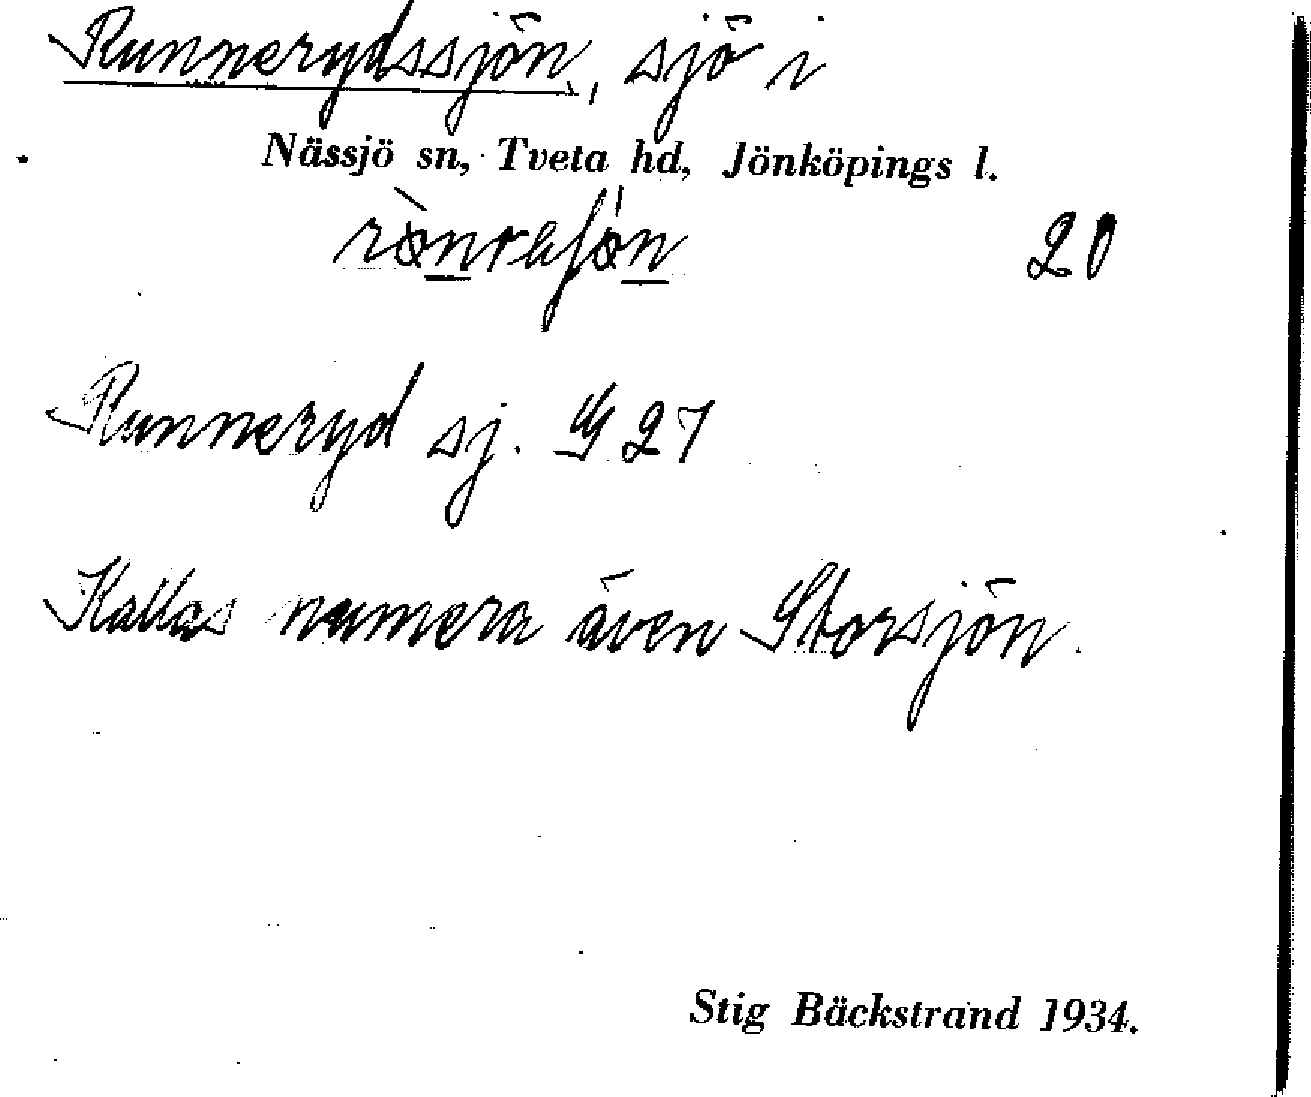 Runnerydssjön, sjö i
Nässjö sn, Tveta hd, Jönköpings l.
20
Runneryd sj. G 27
Kallas numera även Storsjön.
Stig Bäckstrand 1934.